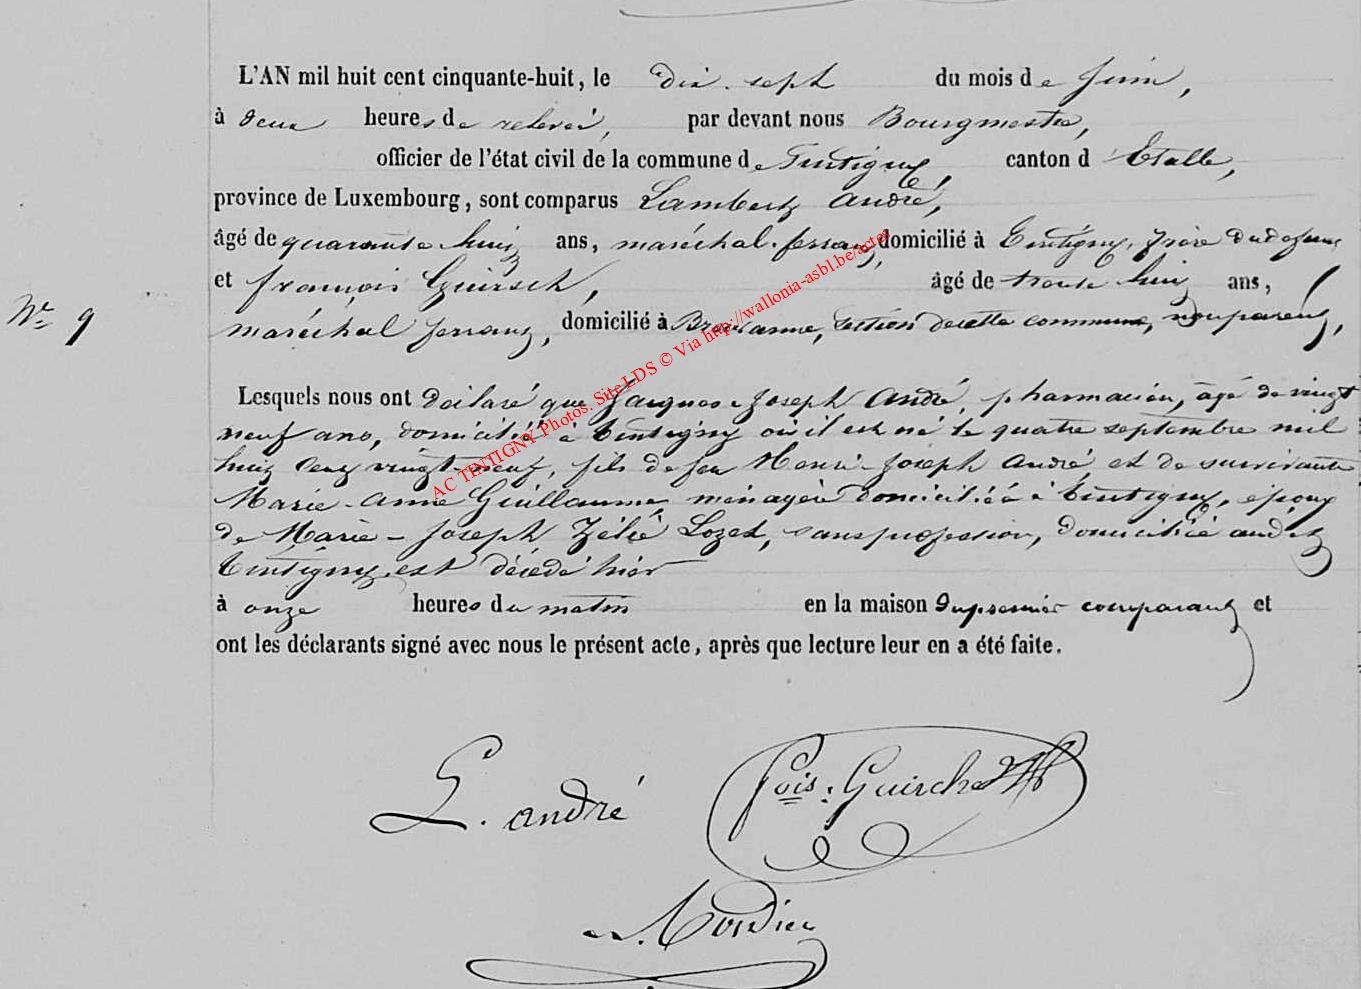 L'AN mil huit cent cinquante-huit, le dix-sept du mois de Juin,
à deux heures de relevée, par devant nous Bourgmestre,
officier de l'état civil de la commune de Tintigny, canton d'Etalle,
province de Luxembourg, sont comparus Lambert André,
âgé de quarante huit ans, maréchal-ferrant, domicilié à Tintigny, frère du défunt
et françois Guirsch, âgé de trente huit ans,
N° 9
maréchal ferrant, domicilié à section de cette commune, non parent,
Lesquels nous ont déclaré que Jacques-Joseph André, pharmacien, âgé de vingt
neuf ans, domicilié à Tintigny où il est né le quatre septembre mil
huit cent vingt-neuf, fils de feu Henri-Joseph André et de survivante
Marie-Anne Guillaume, ménagère domiciliée à Tintigny, époux
de Marie-Joseph Zélie Lozet, sans profession, domiciliée audit
Tintigny, est décédé hier
à onze heures du matin en la maison du premier comparant et
ont les déclarants signé avec nous le présent acte, après que lecture leur en a été faite.
AC TINTIGNY Photos. Site LDS © Via http://wallonia-asbl.be/actes
L. andré
fois: Guirche